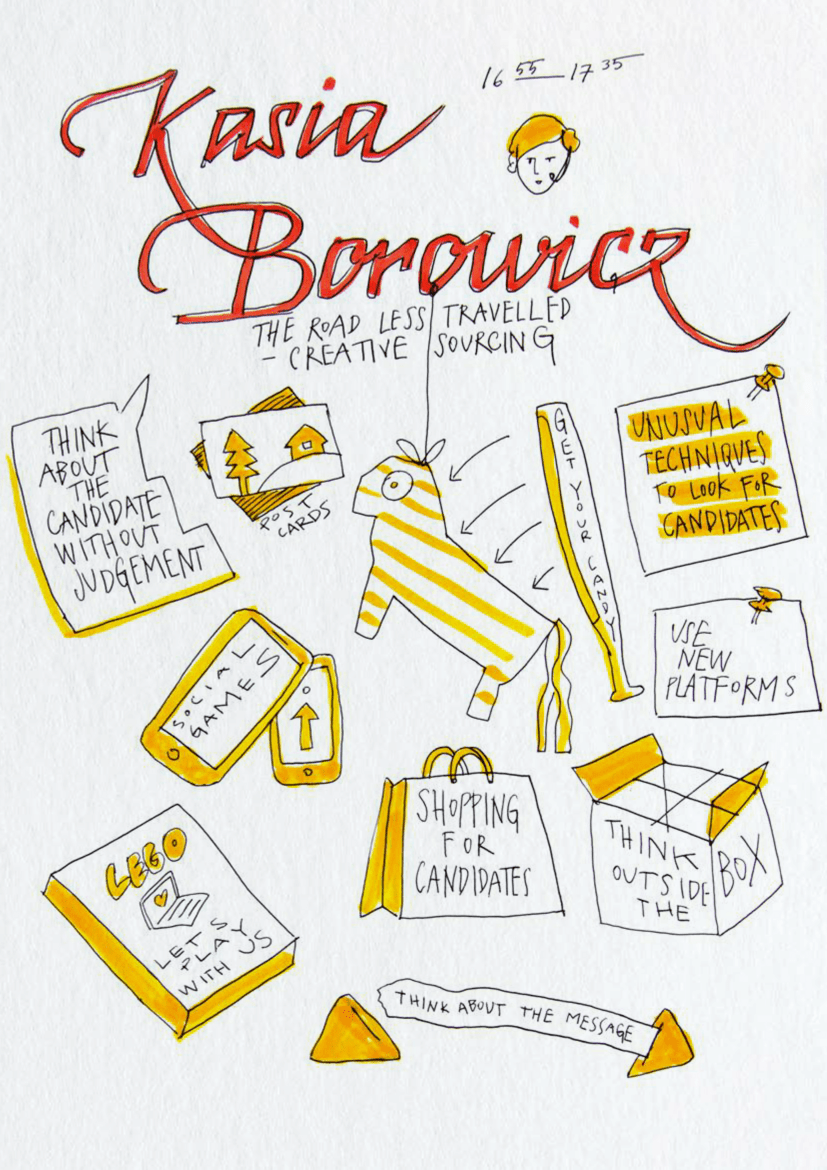 16 55 - 17 35
Kasia
Borowicz
THE ROAD LESS TRAVELLED
- CREATIVE SOURCING
THINK
ABOUT
THE
CANDIDATE
WITHOUT
JUDGEMENT
POST
CARDS
GET YOUR CANDY!
UNUSUAL
TECHNIQUES
TO LOOK FOR
CANDIDATES
USE
NEW
PLATFORMS
SOCIAL
GAMES
SHOPPING
FOR
CANDIDATES
THINK
OUTSIDE
THE
BOX
LEGO
LET'S
PLAY
WITH US
THINK ABOUT THE MESSAGE